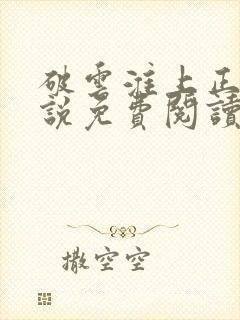 破雲淮上正
說免費閱讀
撒空空